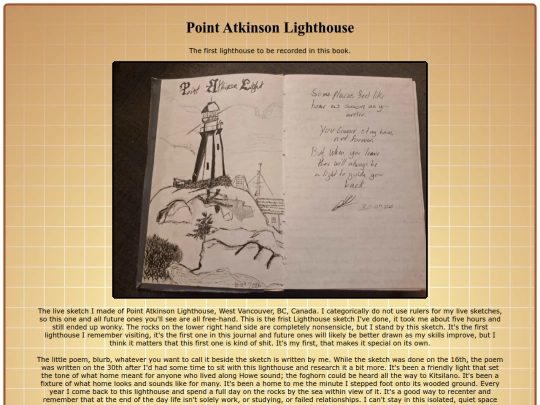 Point Atkinson Lighthouse
The first lighthouse to be recorded in this book.
Point Atkinson Light
Some places feel like
home as soon as you
enter.
You cannot stay here,
not forever.
But when you leave
there will always be
a light to guide you
back.
The live sketch I made of Point Atkinson Lighthouse, West Vancouver, BC, Canada. I categorically do not use rulers for my live sketches,
so this one and all future ones you'll see are all free-hand. This is the frist Lighthouse sketch I've done, it took me about five hours and
still ended up wonky. The rocks on the lower right hand side are completely nonsensicle, but I stand by this sketch. It's the first
lighthouse I remember visiting, it's the first one in this journal and future ones will likely be better drawn as my skills improve, but I
think it matters that this first one is kind of shit. It's my first, that makes it special on its own.
The little poem, blurb, whatever you want to call it beside the sketch is written by me. While the sketch was done on the 16th, the poem
was written on the 30th after I'd had some time to sit with this lighthouse and research it a bit more. It's been a friendly light that set
the tone of what home meant for anyone who lived along Howe sound; the foghorn could be heard all the way to Kitsilano. It's been a
fixture of what home looks and sounds like for many. It's been a home to me the minute I stepped foot onto its wooded ground. Every
year I come back to this lighthouse and spend a full day on the rocks by the sea within view of it. It's a good way to recenter and
remember that at the end of the day life isn't solely work, or studying, or failed relationships. I can't stay in this isolated, quiet space